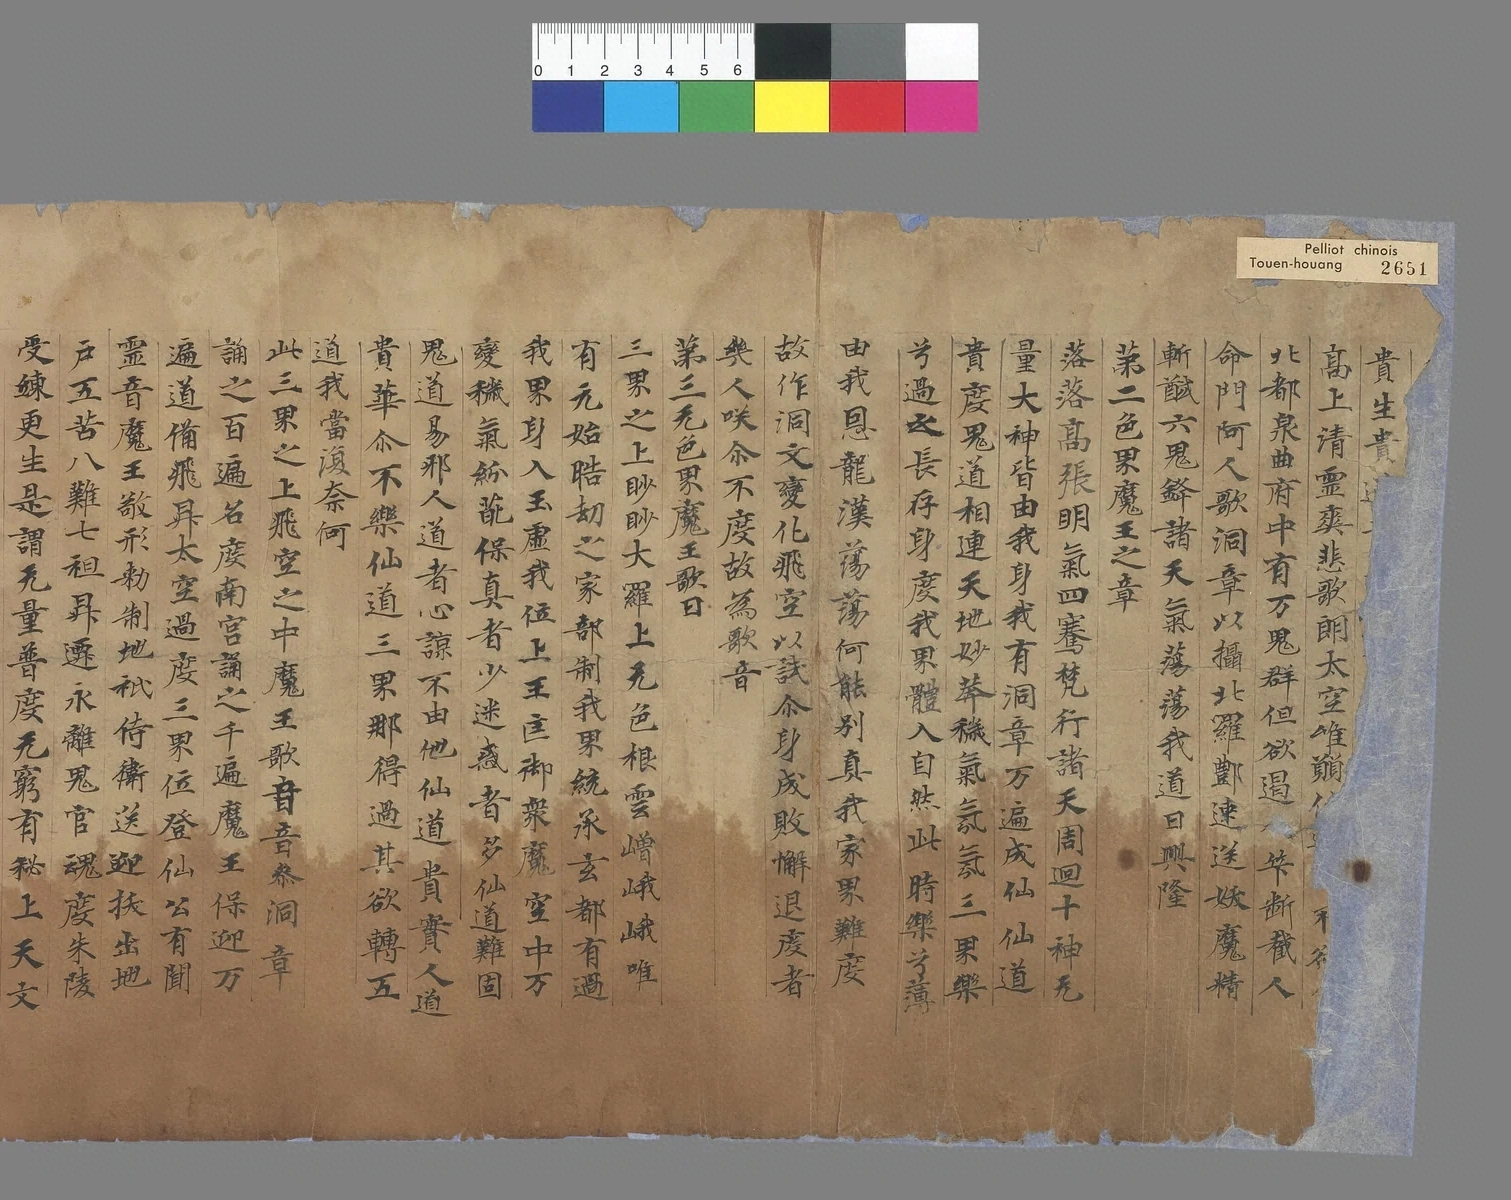 0 1 2 3 4 5 6
Pelliot chinois
Touen-houang 2651
貴生貴
髙上清靈爽悲歌朗太空唯願
北都泉曲府中有万鬼群但欲遏 筭断截人
命門阿人歌洞章以攝北羅酆速送妖魔精
斬馘六鬼鋒諸天氣蕩蕩我道日興隆
苐二色界魔王之章
落落髙張明氣四騫梵行諸天周迴十神无
量大神皆由我身我有洞章万遍成仙仙道
貴度鬼道相連天地妙莽穢氣氛氛三界樂
兮過之長存身度我界體入自然此時樂兮薄
由我恩龍漢蕩蕩何能别真我家界難度
故作洞文變化飛空以試尒身成敗懈退度者
㡬人咲尒不度故為歌音
苐三无色界魔王歌曰
三界之上眇眇大羅上无色根雲嶒峨峨唯
有元始晧劫之家部制我界統承玄都有過
我界身入玉虛我位上王匡御衆魔空中万
變穢氣紛葩保真者少迷惑者多仙道難固
鬼道易邪人道者心諒不由他仙道貴實人道
貴華尒不樂仙道三界那得過其欲轉五
道我當復奈何
此三界之上飛空之中魔王歌音音參洞章
誦之百遍名度南宫誦之千遍魔王保迎万
遍道備飛昇太空過度三界位登仙公有聞
靈音魔王敬形勑制地祇侍衛送迎拔出地
戶五苦八難七祖昇遷永離鬼官魂度朱陵
受鍊更生是謂无量普度无窮有秘上天文